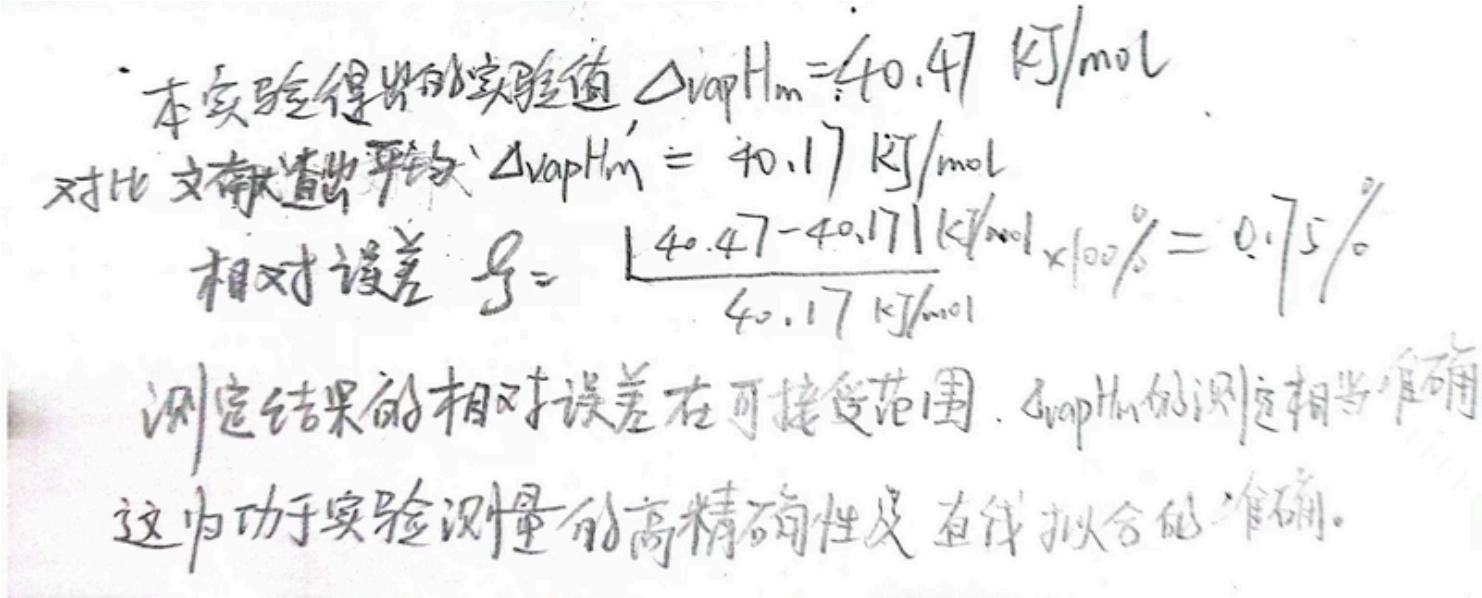 本实验得出的实验值 ΔvapHm = 40.47 kJ/mol
对比文献查出平均 ΔvapHm' = 40.17 KJ/mol
相对误差 = |40.47-40.17| KJ/mol / 40.17 KJ/mol ×100% = 0.75%
测定结果的相对误差在可接受范围. ΔvapHm的测定相当准确
这归功于实验测量的高精确性及直线拟合的准确。